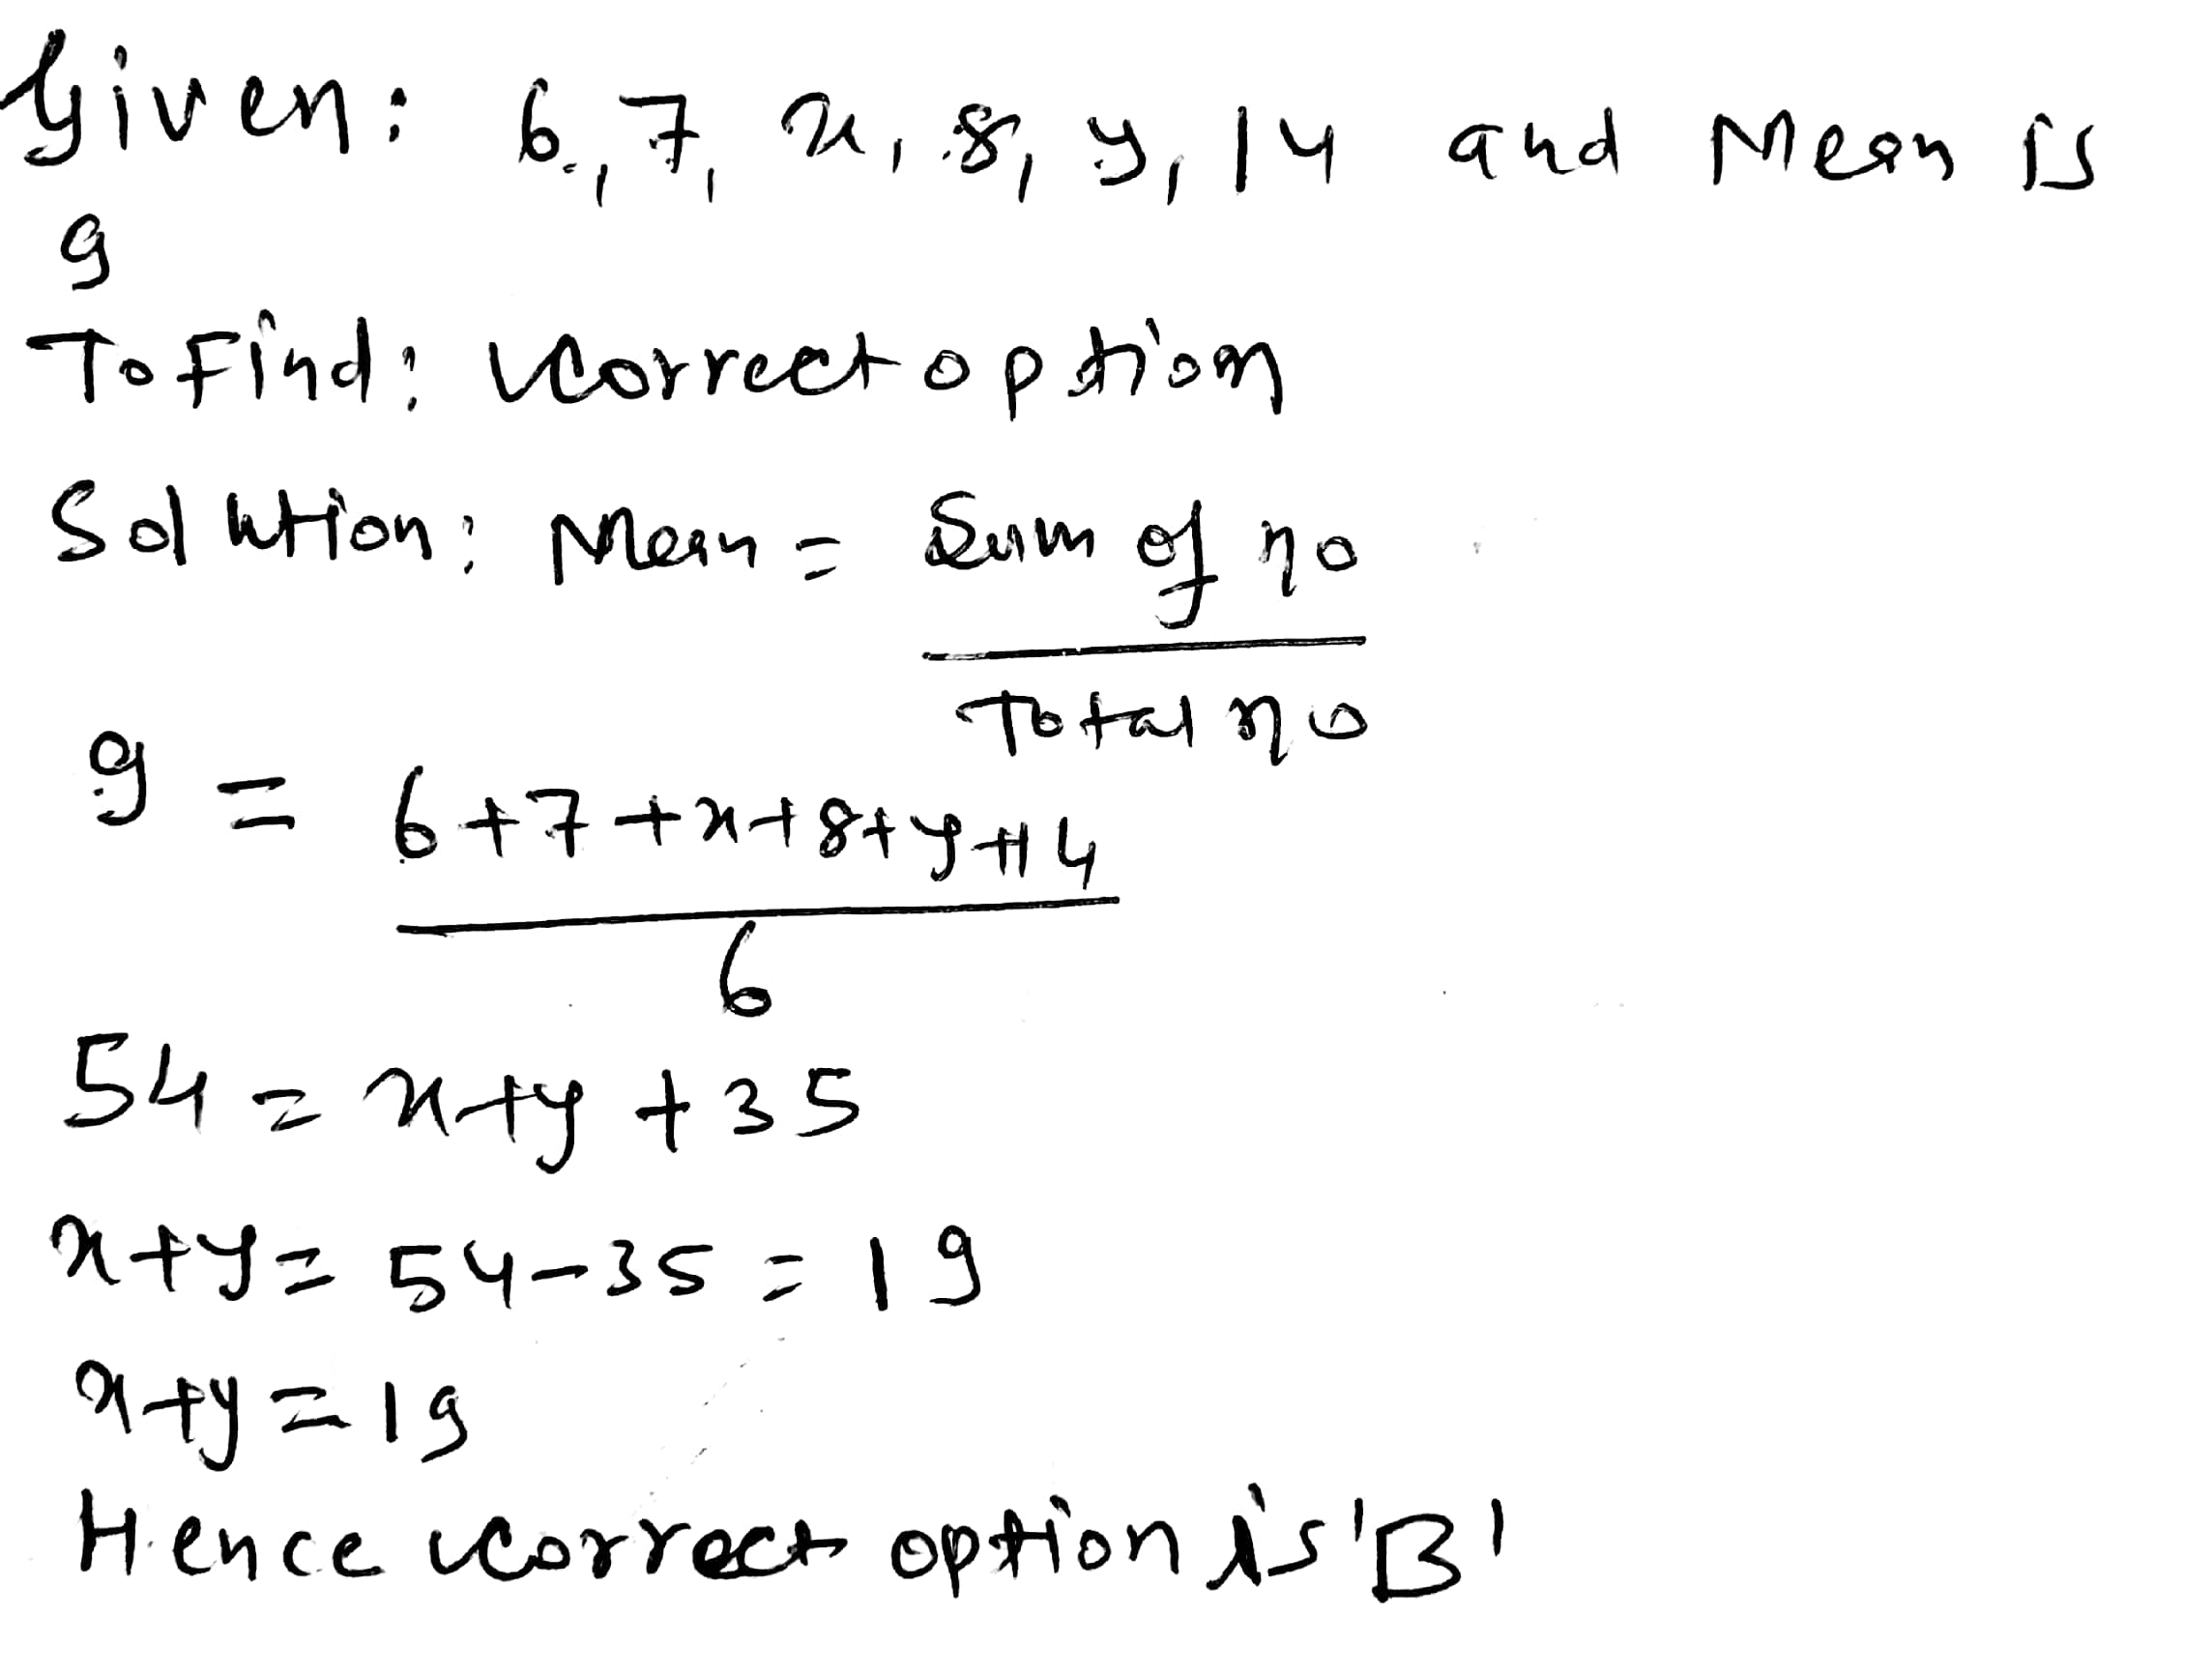 Given: 6, 7, x, 8, y, 14 and Mean is
9
To Find: Correct option
Solution: Mean = Sum of no
Total no
9 = 6+7+x+8+y+14
6
54 = x+y+35
x+y = 54-35 = 19
x+y = 19
Hence correct option is 'B'